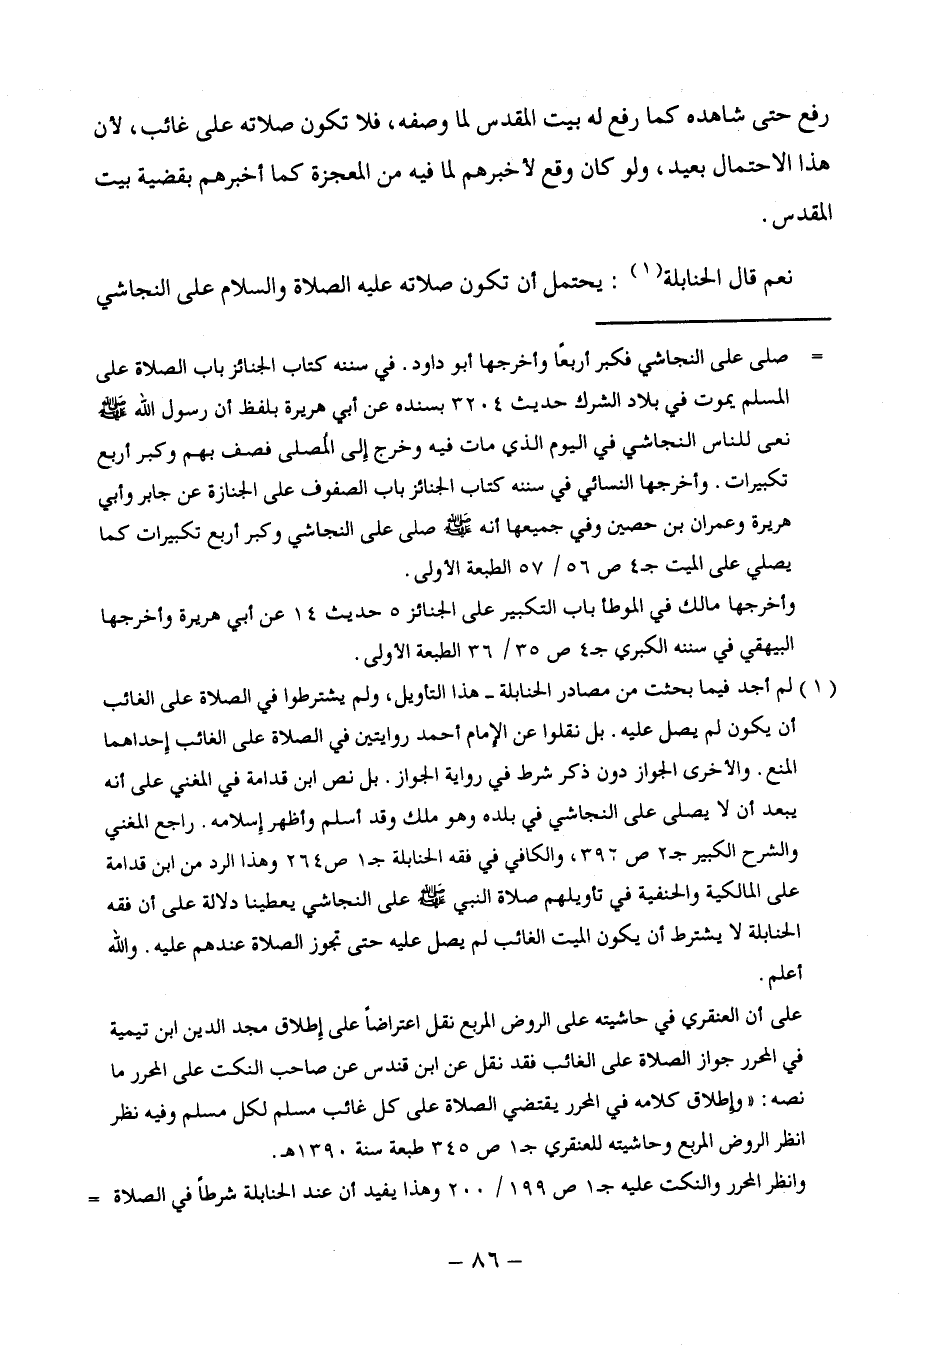 رفع حتى شاهده كما رفع له بيت المقدس لما وصفه، فلا تكون صلاته على غائب، لأن
هذا الاحتمال بعيد، ولو كان وقع لأخبرهم لما فيه من المعجزة كما أخبرهم بقضية بيت
المقدس.
نعم قال الحنابلة(١) : يحتمل أن تكون صلاته عليه الصلاة والسلام على النجاشي
= صلى على النجاشي فكبر أربعاً وأخرجها أبو داود. في سننه كتاب الجنائز باب الصلاة على
المسلم يموت في بلاد الشرك حديث ٣٢٠٤ بسنده عن أبي هريرة بلفظ أن رسول الله ﷺ
نعى للناس النجاشي في اليوم الذي مات فيه وخرج إلى المُصلى فصف بهم وكبر أربع
تكبيرات. وأخرجها النسائي في سننه كتاب الجنائز باب الصفوف على الجنازة عن جابر وأبي
هريرة وعمران بن حصين وفي جميعها أنه ﷺ صلى على النجاشي وكبر أربع تكبيرات كما
يصلي على الميت جـ٤ ص ٥٦/ ٥٧ الطبعة الأولى.
وأخرجها مالك في الموطأ باب التكبير على الجنائز ٥ حديث ١٤ عن أبي هريرة وأخرجها
البيهقي في سننه الكبري جـ٤ ص ٣٥/ ٣٦ الطبعة الأولى.
(١) لم أجد فيما بحثت من مصادر الحنابلة ـ هذا التأويل، ولم يشترطوا في الصلاة على الغائب
أن يكون لم يصل عليه. بل نقلوا عن الإمام أحمد روايتين في الصلاة على الغائب إحداهما
المنع. والأخرى الجواز دون ذكر شرط في رواية الجواز. بل نص ابن قدامة في المغني على أنه
يبعد أن لا يصلى على النجاشي في بلده وهو ملك وقد أسلم وأظهر إسلامه. راجع المغني
والشرح الكبير جـ٢ ص ٣٩٦، والكافي في فقه الحنابلة جـ١ ص٢٦٤ وهذا الرد من ابن قدامة
على المالكية والحنفية في تأويلهم صلاة النبي ﷺ على النجاشي يعطينا دلالة على أن فقه
الحنابلة لا يشترط أن يكون الميت الغائب لم يصل عليه حتى تجوز الصلاة عندهم عليه. والله
أعلم.
على أن العنقري في حاشيته على الروض المربع نقل اعتراضاً على إطلاق مجد الدين ابن تيمية
في المحرر جواز الصلاة على الغائب فقد نقل عن ابن قندس عن صاحب النكت على المحرر ما
نصه: «وإطلاق كلامه في المحرر يقتضي الصلاة على كل غائب مسلم لكل مسلم وفيه نظر
انظر الروض المربع وحاشيته للعنقري جـ١ ص ٣٤٥ طبعة سنة ١٣٩٠هـ.
وانظر المحرر والنكت عليه جـ١ ص ١٩٩/ ٢٠٠ وهذا يفيد أن عند الحنابلة شرطاً في الصلاة =
- ٨٦ -